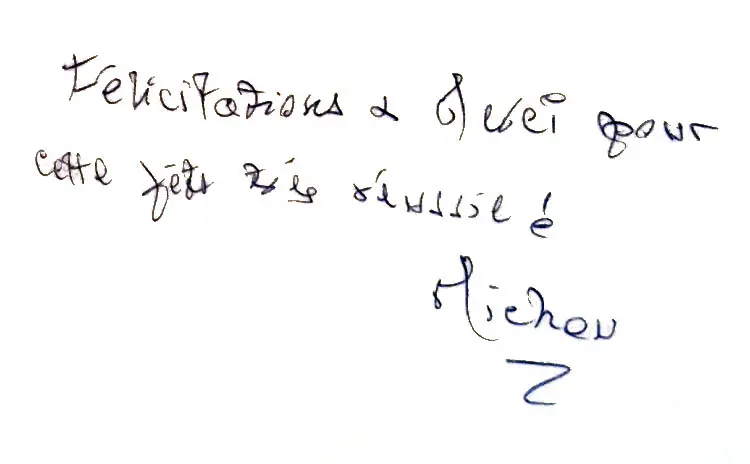 Félicitations & Qucí pour
cette fête très réussie é
Michou